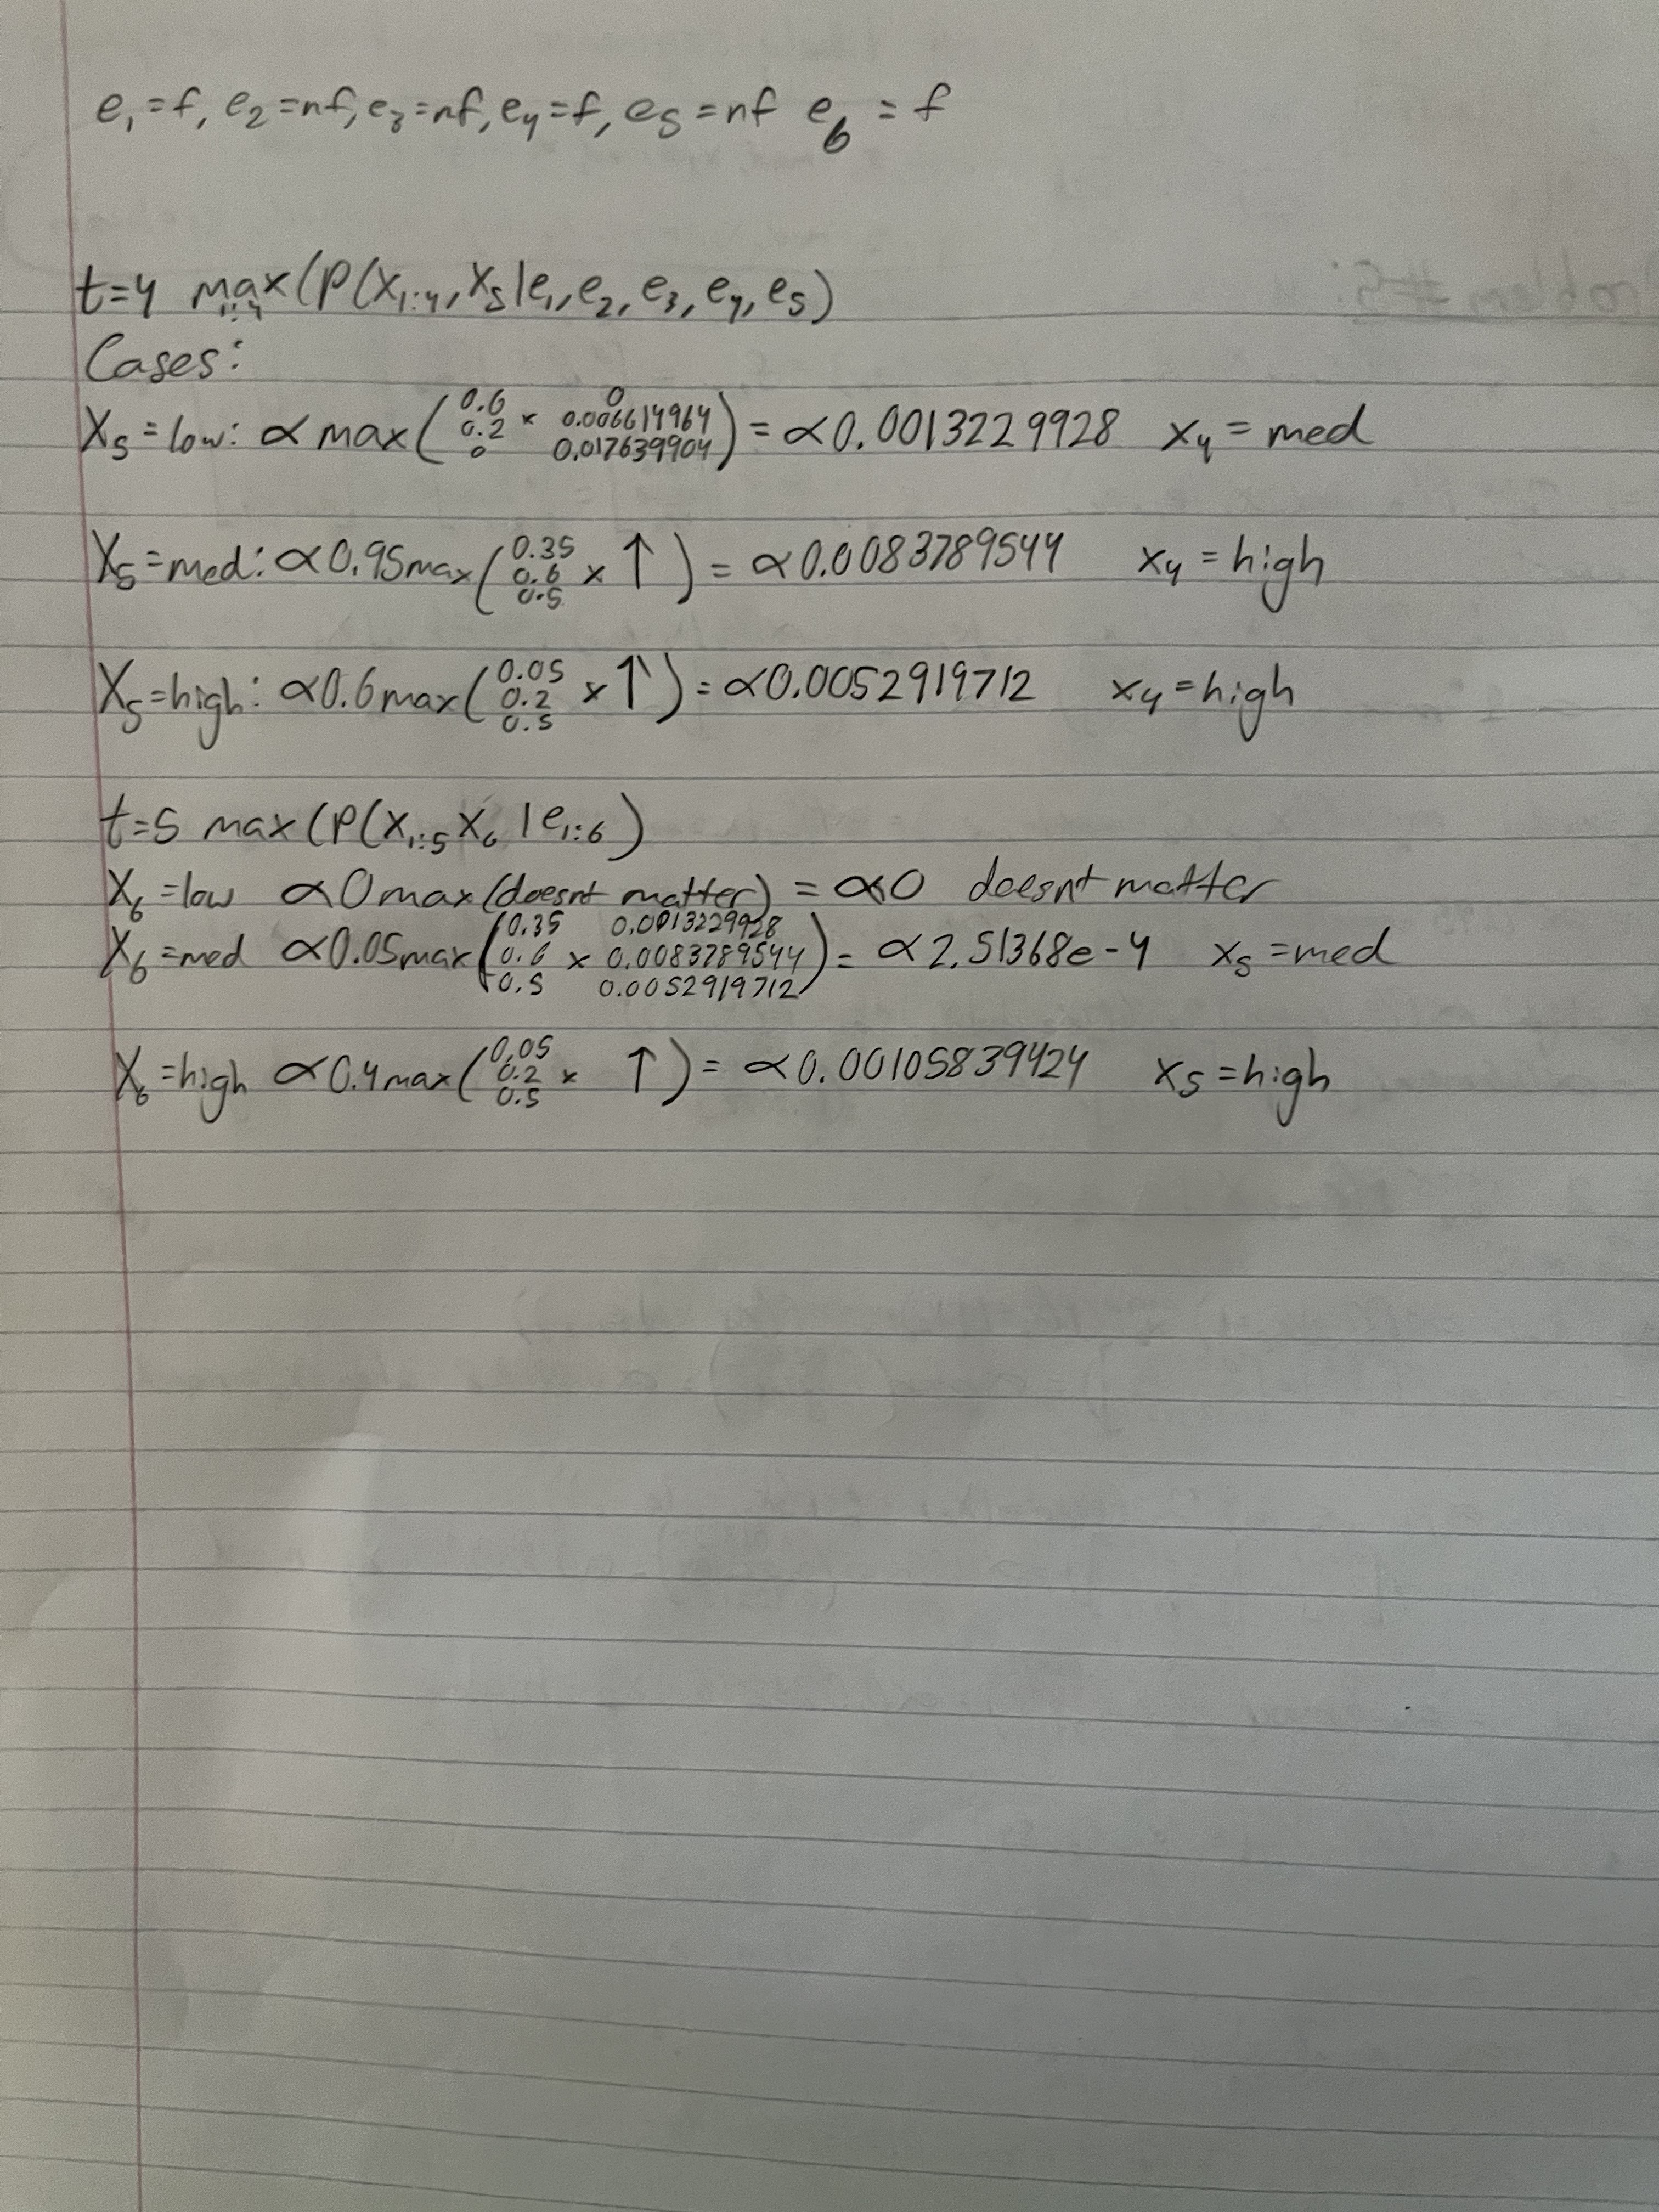 e₁=f, e₂=nf, e₃=nf, e₄=f, e₅=nf e₆ = f
t=4 max(P(X₁:₄, X₅|e₁, e₂, e₃, e₄, e₅)
1:4
Cases:
X₅=low: ∝ max( 0.6 0.2 0 × 0 0.006614964 0.017639904 ) = ∝0.0013229928 x₄ = med
X₅=med: ∝0.95max( 0.35 0.6 0.5 × ↑ ) = ∝0.0083789544 x₄ = high
X₅=high: ∝0.6max( 0.05 0.2 0.5 × ↑ ) = ∝0.0052919712 x₄=high
t=5 max(P(X₁:₅ X₆ | e₁:₆)
X₆=low ∝0max(doesnt matter) = ∝0 doesnt matter
X₆=med ∝0.05max( 0.35 0.6 0.5 × 0.0013229928 0.0083789544 0.0052919712 ) = ∝2.51368e-4 x₅=med
X₆=high ∝0.4max( 0.05 0.2 0.5 × ↑ ) = ∝0.00105839424 x₅=high